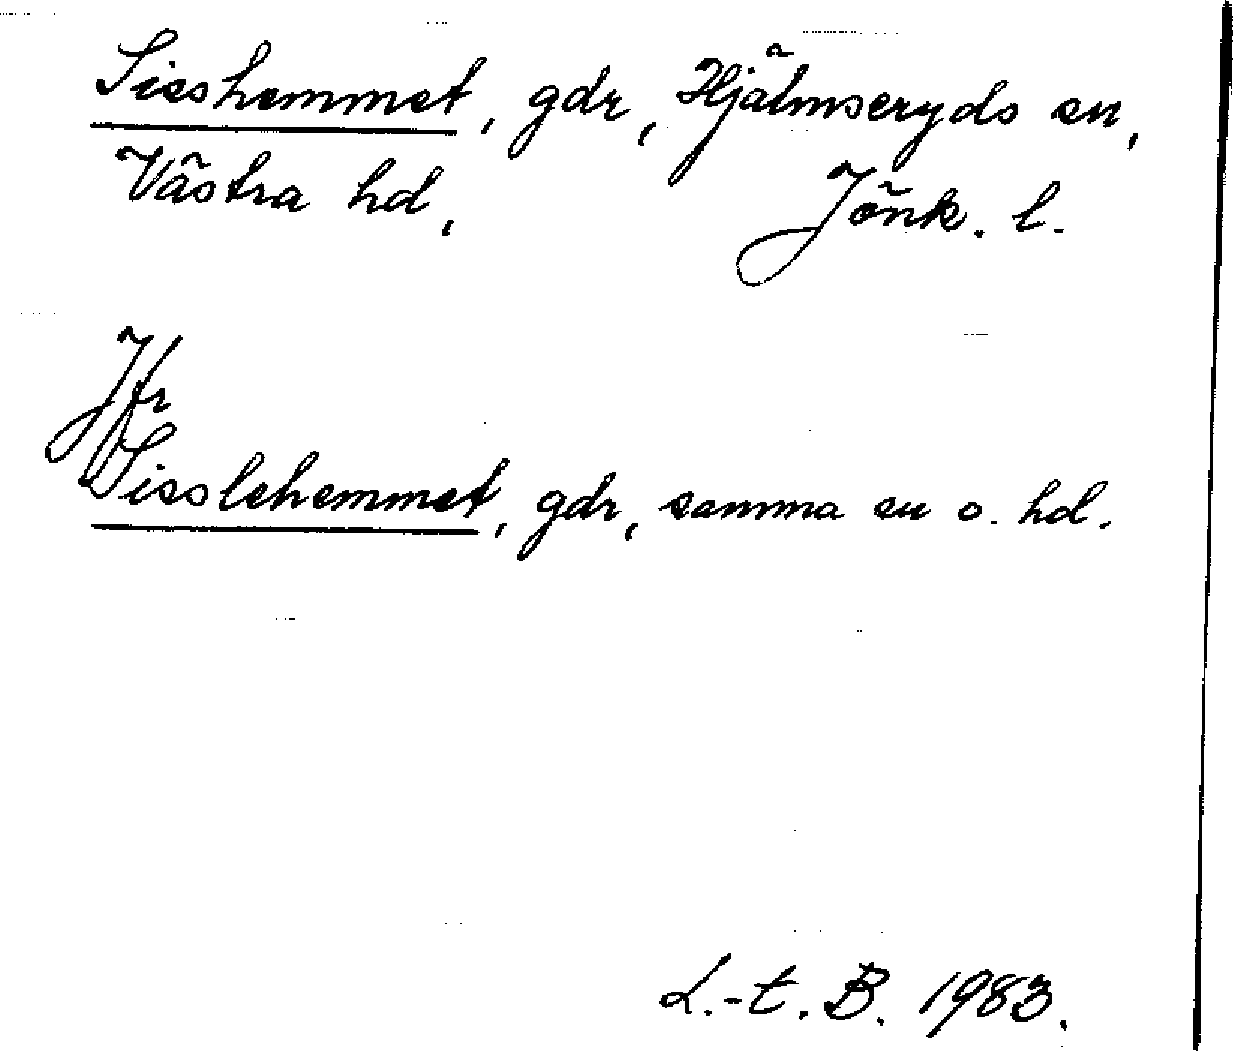 Sisshemmet, gdr, Hjälmseryds sn,
Västra hd, Jönk. l.
Jfr
Sisslehemmet, gdr, samma sn o. hd.
L.-t. B. 1983.